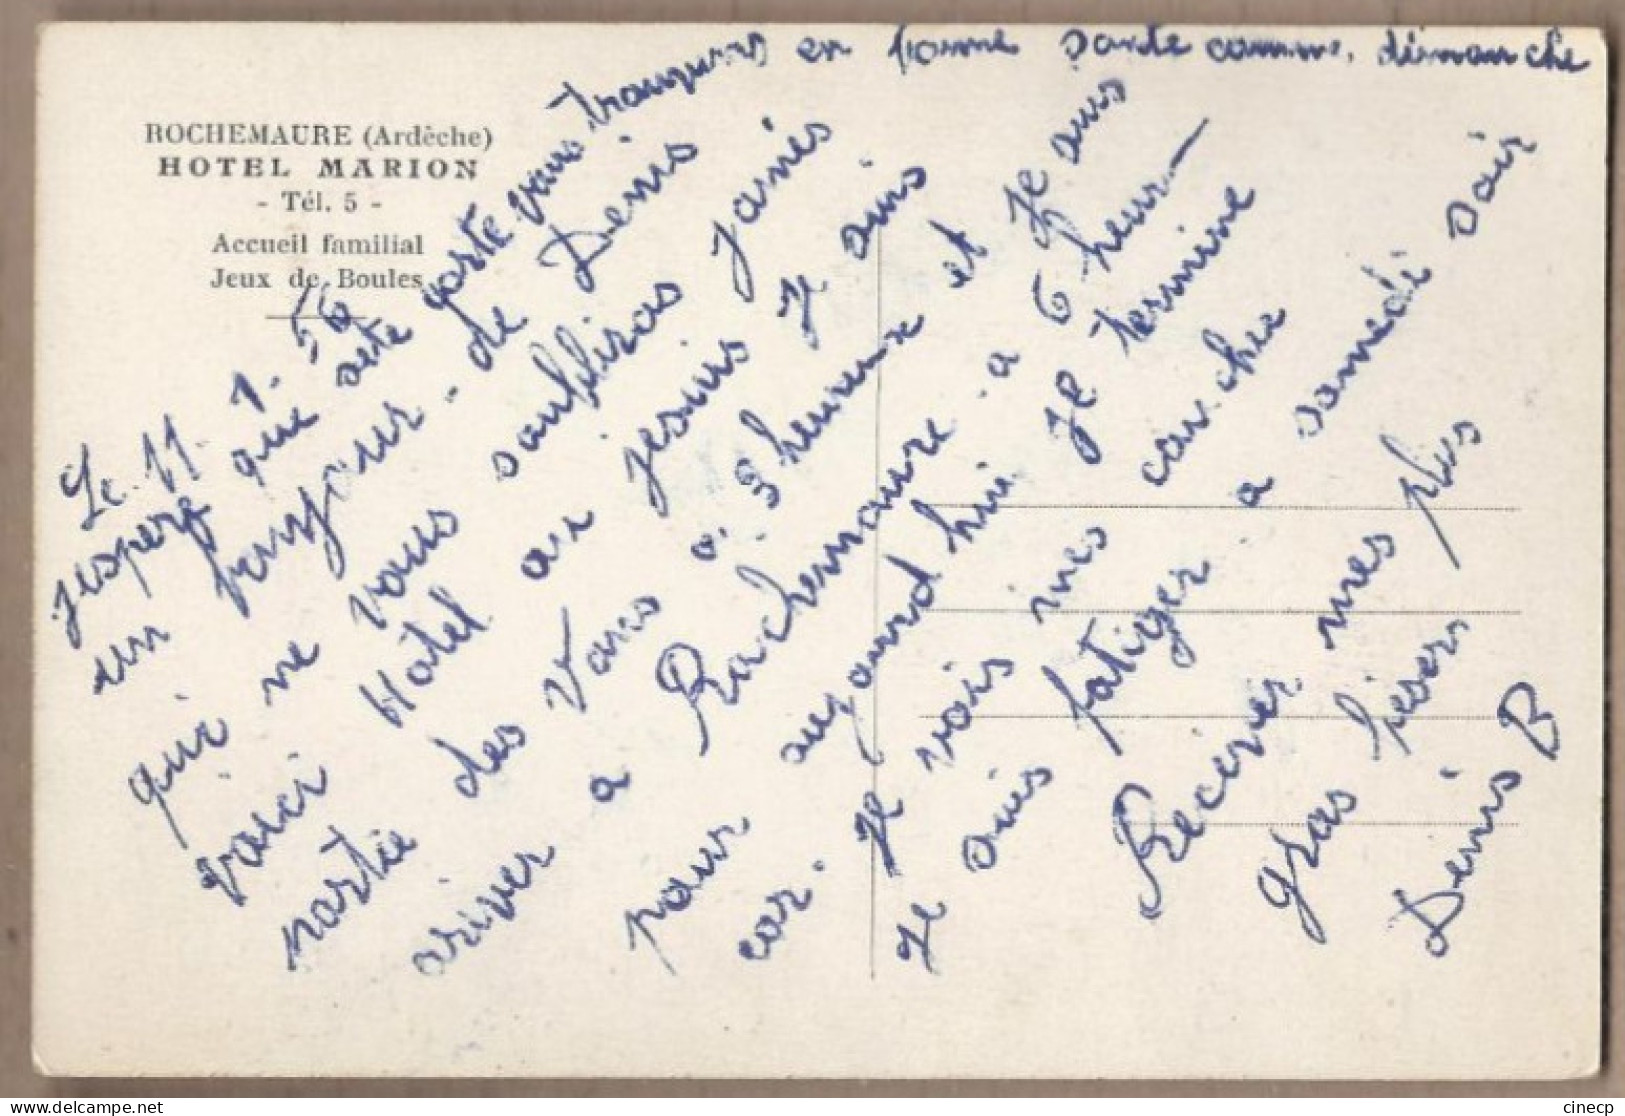 ROCHEMAURE (Ardèche)
HOTEL MARION
- Tél. 5 -
Accueil familial
Jeux de Boules
Le 11. 1. 56
jespere que sete carte vous trouveras en forme sante comme. dimanche
un bonjour - de Denis
qui ne vous oubliras jamés
voici Hotel ou jesuis Je suis
partie des Vans a. 3 heures et Je suis
ariver a Rochemaure a 6 heur
pour aujourd hui Je termine
car. Je vois mes coucher
Je suis fatiger a samedé soir
Recever mes plus
gras biesers
Denis B
cinecp